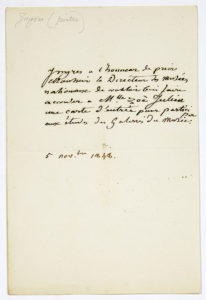 Ingres (peintre)
Ingres a l'honneur de prier
Monsieur le Directeur des musées
nationaux de vouloir bien faire
accorder à Mlle Zoë Julien
une carte d'entrée pour
aux études des Galeries du Musée
5 novbre 1848.